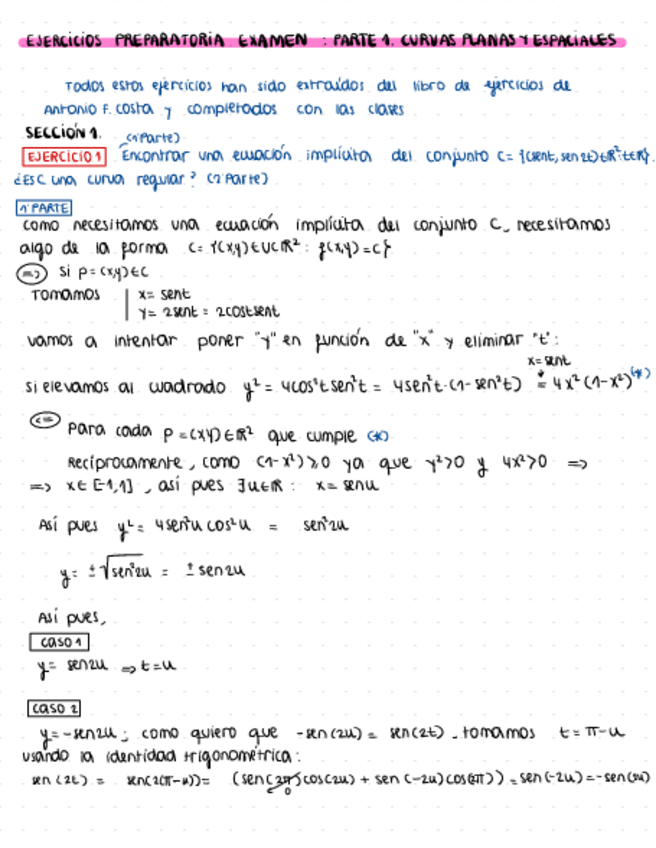 EJERCICIOS PREPARATORIA EXAMEN : PARTE 1. CURVAS PLANAS Y ESPACIALES
Todos estos ejercicios han sido extraídos del libro de ejercicios de
Antonio F. Costa y completados con las clases
SECCIÓN 1.
(1ª Parte)
EJERCICIO 1 Encontrar una ecuación implícita del conjunto C = {(sent, sen2t)∈ℝ²: t∈ℝ}.
¿ES C una curva regular? (2ª Parte)
1ª PARTE
Como necesitamos una ecuación implícita del conjunto C, necesitamos
algo de la forma C = {(x,y)∈U⊂ℝ² : f(x,y)=c}
=>) Si p=(x,y)∈C
Tomamos | x = sent
| y = 2sent = 2costsent
vamos a intentar poner "y" en función de "x" y eliminar "t":
x=sent
si elevamos al cuadrado y² = 4cos²t sen²t = 4sen²t·(1-sen²t) = 4x²(1-x²) (*)
<= Para cada p=(x,y)∈ℝ² que cumple (*)
Recíprocamente, como (1-x²)≥0 ya que y²>0 y 4x²>0 =>
=> x∈[-1,1], así pues ∃u∈ℝ: x=senu
Así pues y² = 4sen²u cos²u = sen²2u
y = ±√sen²2u = ± sen2u
Así pues,
CASO 1
y = sen2u => t=u
CASO 2
y=-sen2u; como quiero que -sen(2u) = sen(2t). tomamos t=π-u
usando la identidad trigonométrica:
sen(2t) = sen(2(π-u)) = (sen(2π)cos(2u) + sen(-2u)cos(2π)) = sen(-2u) = -sen(2u)
0